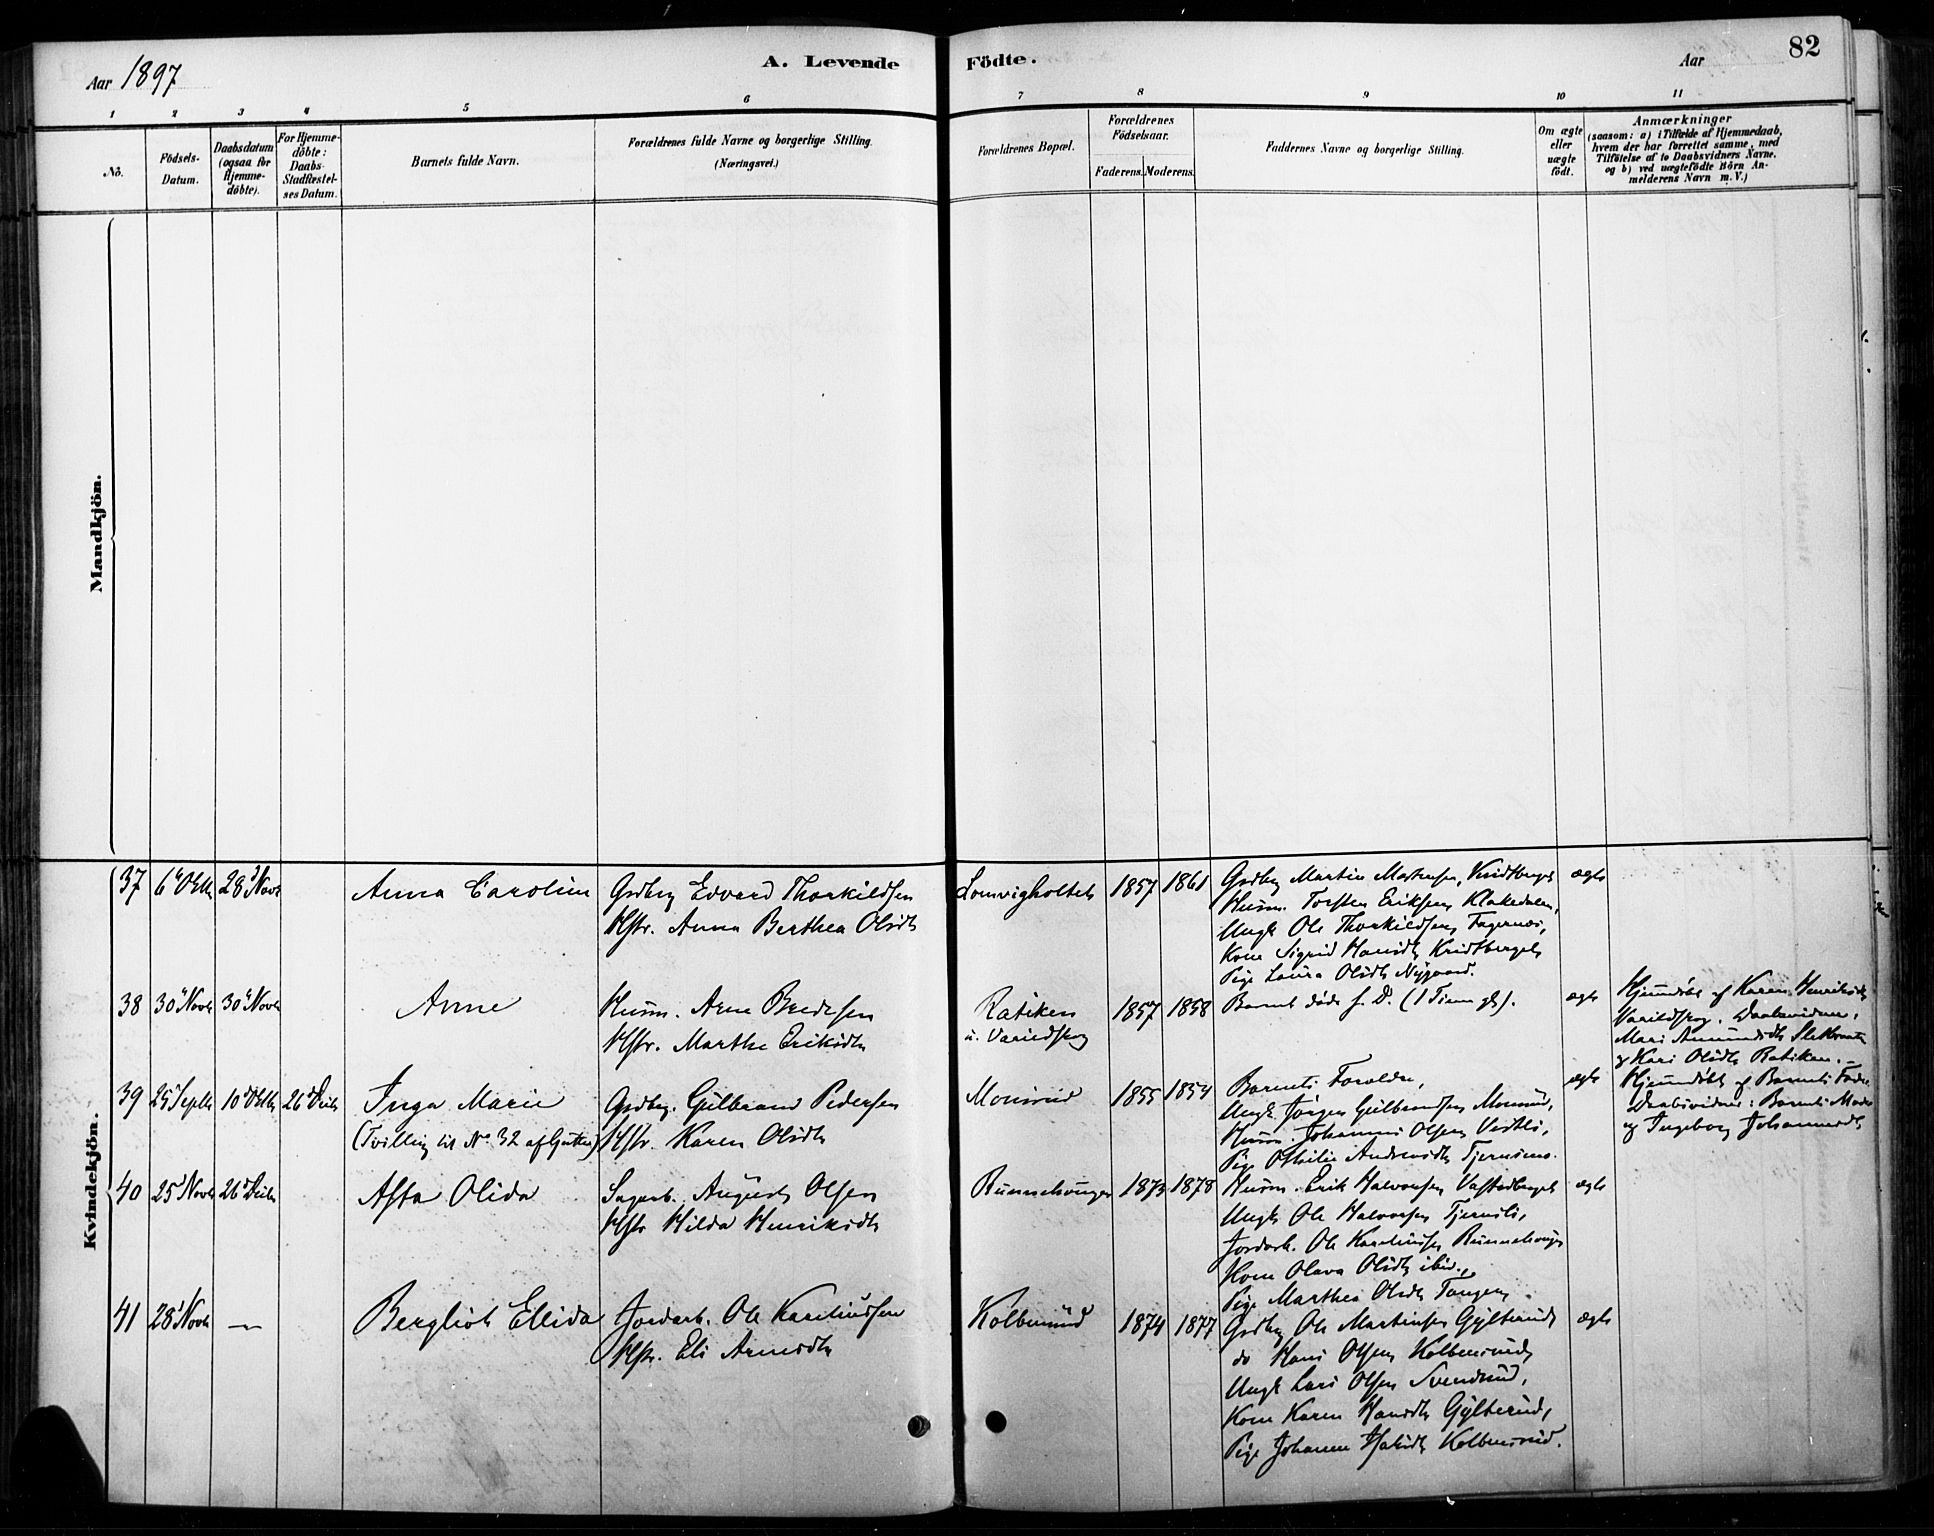 Aar 1897
A. Levende Födte.
Aar
82
1 2 3 4 5 6 7 8 9 10 11
No.
Födsels-
Datum.
Daabsdatum
(ogsaa for
Hjemme-
döbte).
For Hjemme-
döbte:
Daabs-
Stadfæstel-
ses Datum.
Barnets fulde Navn.
Forældrenes fulde Navne og borgerlige Stilling.
(Næringsvei.)
Forældrenes Bopæl.
Forældrenes
Födselsaar.
Faderens. Moderens.
Faddernes Navne og borgerlige Stilling.
Om ægte
eller
uægte
födt.
Anmærkninger
(saasom: a) i Tilfælde af Hjemmedaab,
hvem der har forrettet samme, med
Tilföielse af to Daabsvidners Navne,
og b) ved uægtefödte Börn An-
melderens Navn m. V.)
Mandkjön.
Kvindekjön.
37 6 28 Novb
Anna Caroline
Gdbrg Edvard Thorkildsen
Hstr. Anna Berthea Olsdtr
Lomvigholtet
1857 1861
Gdbrg Martin
Husm. Torsten Eriksen Klakedalen,
Ungk Ole Thorkildsen Fagernes,
Kone Sigrid Hansdtr
Pige Laura Olsdtr Nygaard.
ægte
38 30 Novb 30 Novb
Anne
Husm. Arne Bredesen
Hstr. Marthe Eriksdtr
Ratiken
u. Varildskog
1857 1858
Barnet døde f. D. (1 Time gl).
ægte
Hjemdøbt af Karen Henriksdtr
Varildskog. Daabsvidner:
Mari Amundsdtr
og Kari Olsdtr Ratiken.
39 25 Septb 10 Oktb 26 Decb
Inga Marie
(Tvilling til No 32 af Gutter)
Gdbrg. Gulbrand Pedersen
Hstr. Karen Olsdtr
Monsrud
1855 1854
Barnets Forældre,
Ungk. Jørgen Gulbrandsen Monsrud,
Husm. Johannes Olsen Vestli,
Pige Othilie Andreasdtr
ægte
Hjemdøbt af Barnets Fader.
Daabsvidner: Barnets Moder
og Ingeborg Johannesdtr
40 25 Novb 26 Decb
Asta Olida
Sagarb. August Olsen
Hstr Hilda Henriksdtr
1873 1878
Husm. Erik Halvorsen
Ungk Ole Halvorsen Tjernsli,
Jordarb. Ole Karelinsen
Kone Olava Olsdtr ibid.,
Pige Marthea Olsdtr Tangen.
ægte
41 28 Novb —
Bergliot Ellida
Jordarb. Ole Karelinsen
Hstr. Eli Arnesdtr
Kolbensrud
1874 1877
Gdbrg Ole Martinsen Gylterud
do Hans Olsen Kolbensrud,
Ungk Lars Olsen Svendsrud,
Kone Karen Hansdtr Gylterud,
Pige Johanne Kolbensrud.
ægte